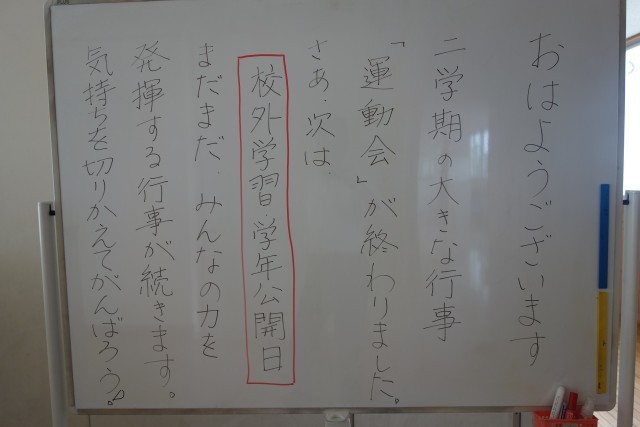 おはようございます
二学期の大きな行事
「運動会」が終わりました。
さあ、次は、
校外学習 学年公開日
まだまだ、みんなの力を
発揮する行事が続きます。
気持ちを切りかえてがんばろう!